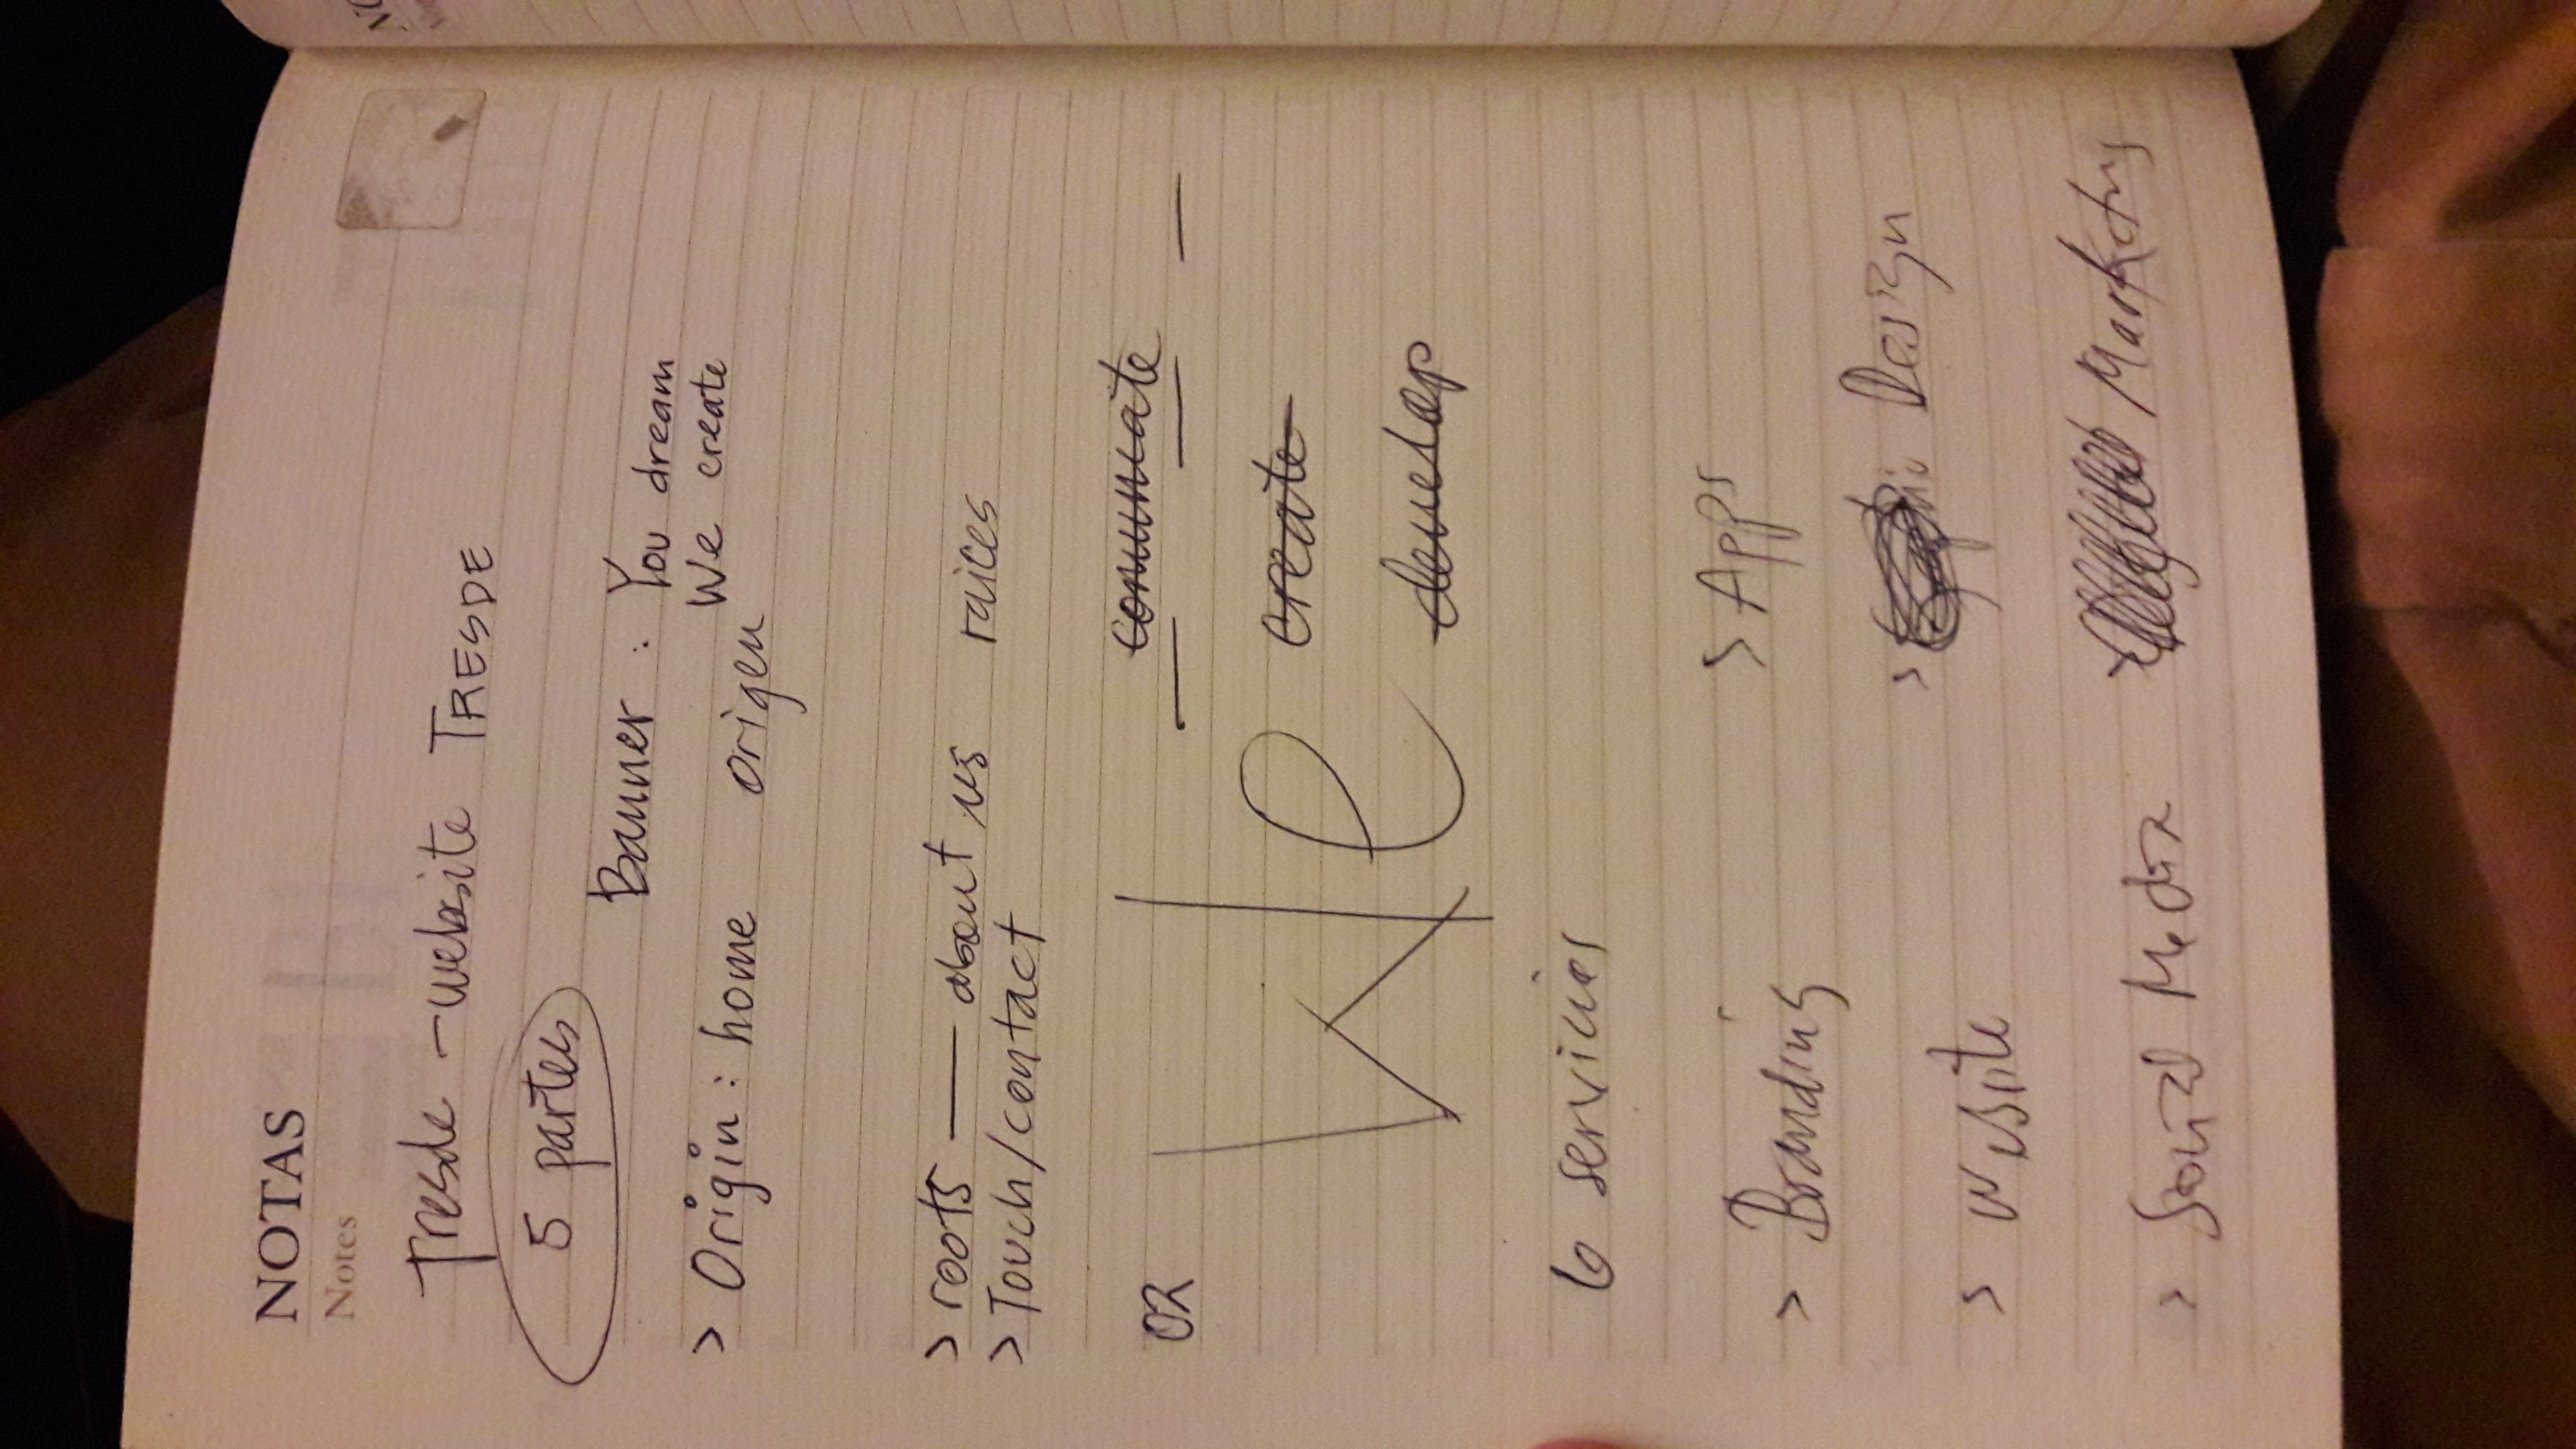 NOTAS
Notes
Tresde - website TRESDE
5 partes
Banner : You dream
We create
> Origin : home origen
> roots — about us raices
> Touch/contact
comunicate
02 We
create
develop
6 servicios
> Apps
> Branding
> Design
> Website
> Social Media
Marketing